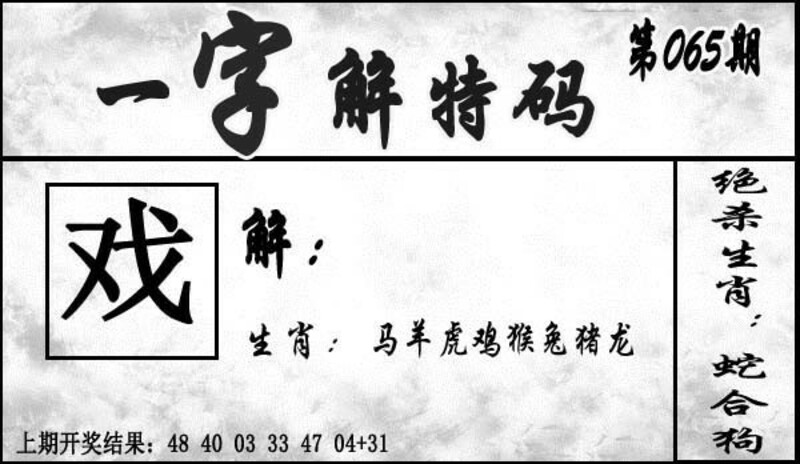 一字解特码
第065期
戏
解：
生肖： 马羊虎鸡猴兔猪龙
上期开奖结果：48 40 03 33 47 04+31
绝杀生肖：蛇合狗